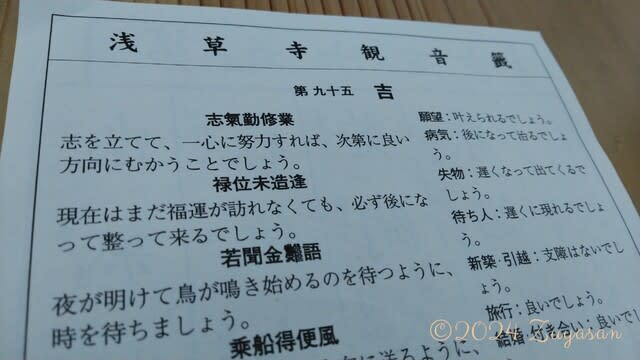 浅草寺観音籤
第九十五 吉
志氣勤修業
志を立てて、一心に努力すれば、次第に良い
方向にむかうことでしょう。
禄位未造逢
現在はまだ福運が訪れなくても、必ず後にな
って整って来るでしょう。
若聞金雞語
夜が明けて鳥が鳴き始めるのを待つように、
時を待ちましょう。
乗船得便風
に送るように、
願望:叶えられるでしょう。
病気:後になって治るでしょ
う。
失物:遅くなって出てくるで
しょう。
待ち人:遅くに現れるでしょ
う。
新築・引越:支障はないでし
ょう。
旅行:良いでしょう。
結婚・付き合い:良いでし
©2024 Zugasan